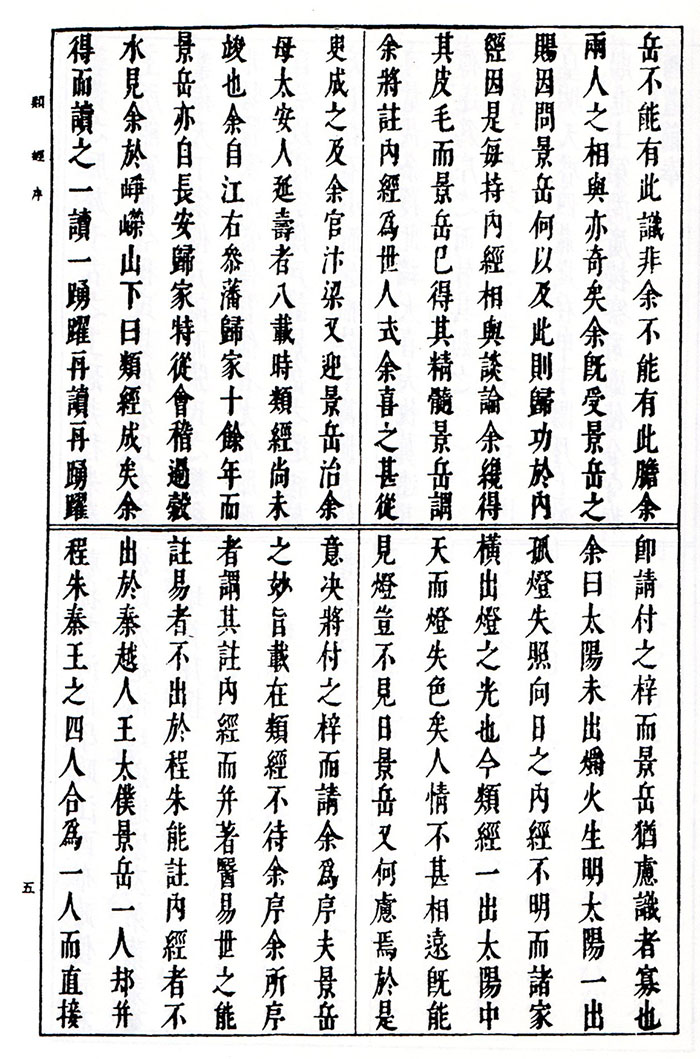 岳不能有此識非余不能有此膽余
兩人之相與亦奇矣余旣受景岳之
賜因問景岳何以及此則歸功於內
經因是每持內經相與談論余纔得
其皮毛而景岳已得其精髓景岳謂
余將註內經爲世人式余喜之甚從
臾成之及余官汴梁又迎景岳治余
母太安人延壽者八載時類經尚未
竣也余自江右叅藩歸家十餘年而
景岳亦自長安歸家特從會稽過㲄
水見余於崢嶸山下曰類經成矣余
得而讀之一讀一踴躍再讀再踴躍
卽請付之梓而景岳猶慮識者寡也
余曰太陽未出爝火生明太陽一出
孤燈失照向日之內經不明而諸家
橫出燈之光也今類經一出太陽中
天而燈失色矣人情不甚相遠旣能
見燈豈不見日景岳又何慮焉於是
意决將付之梓而請余爲序夫景岳
之妙旨載在類經不待余序余所序
者謂其註內經而幷著醫易世之能
註易者不出於程朱能註內經者不
出於秦越人王太僕景岳一人却幷
程朱秦王之四人合爲一人而直接
類經序
五